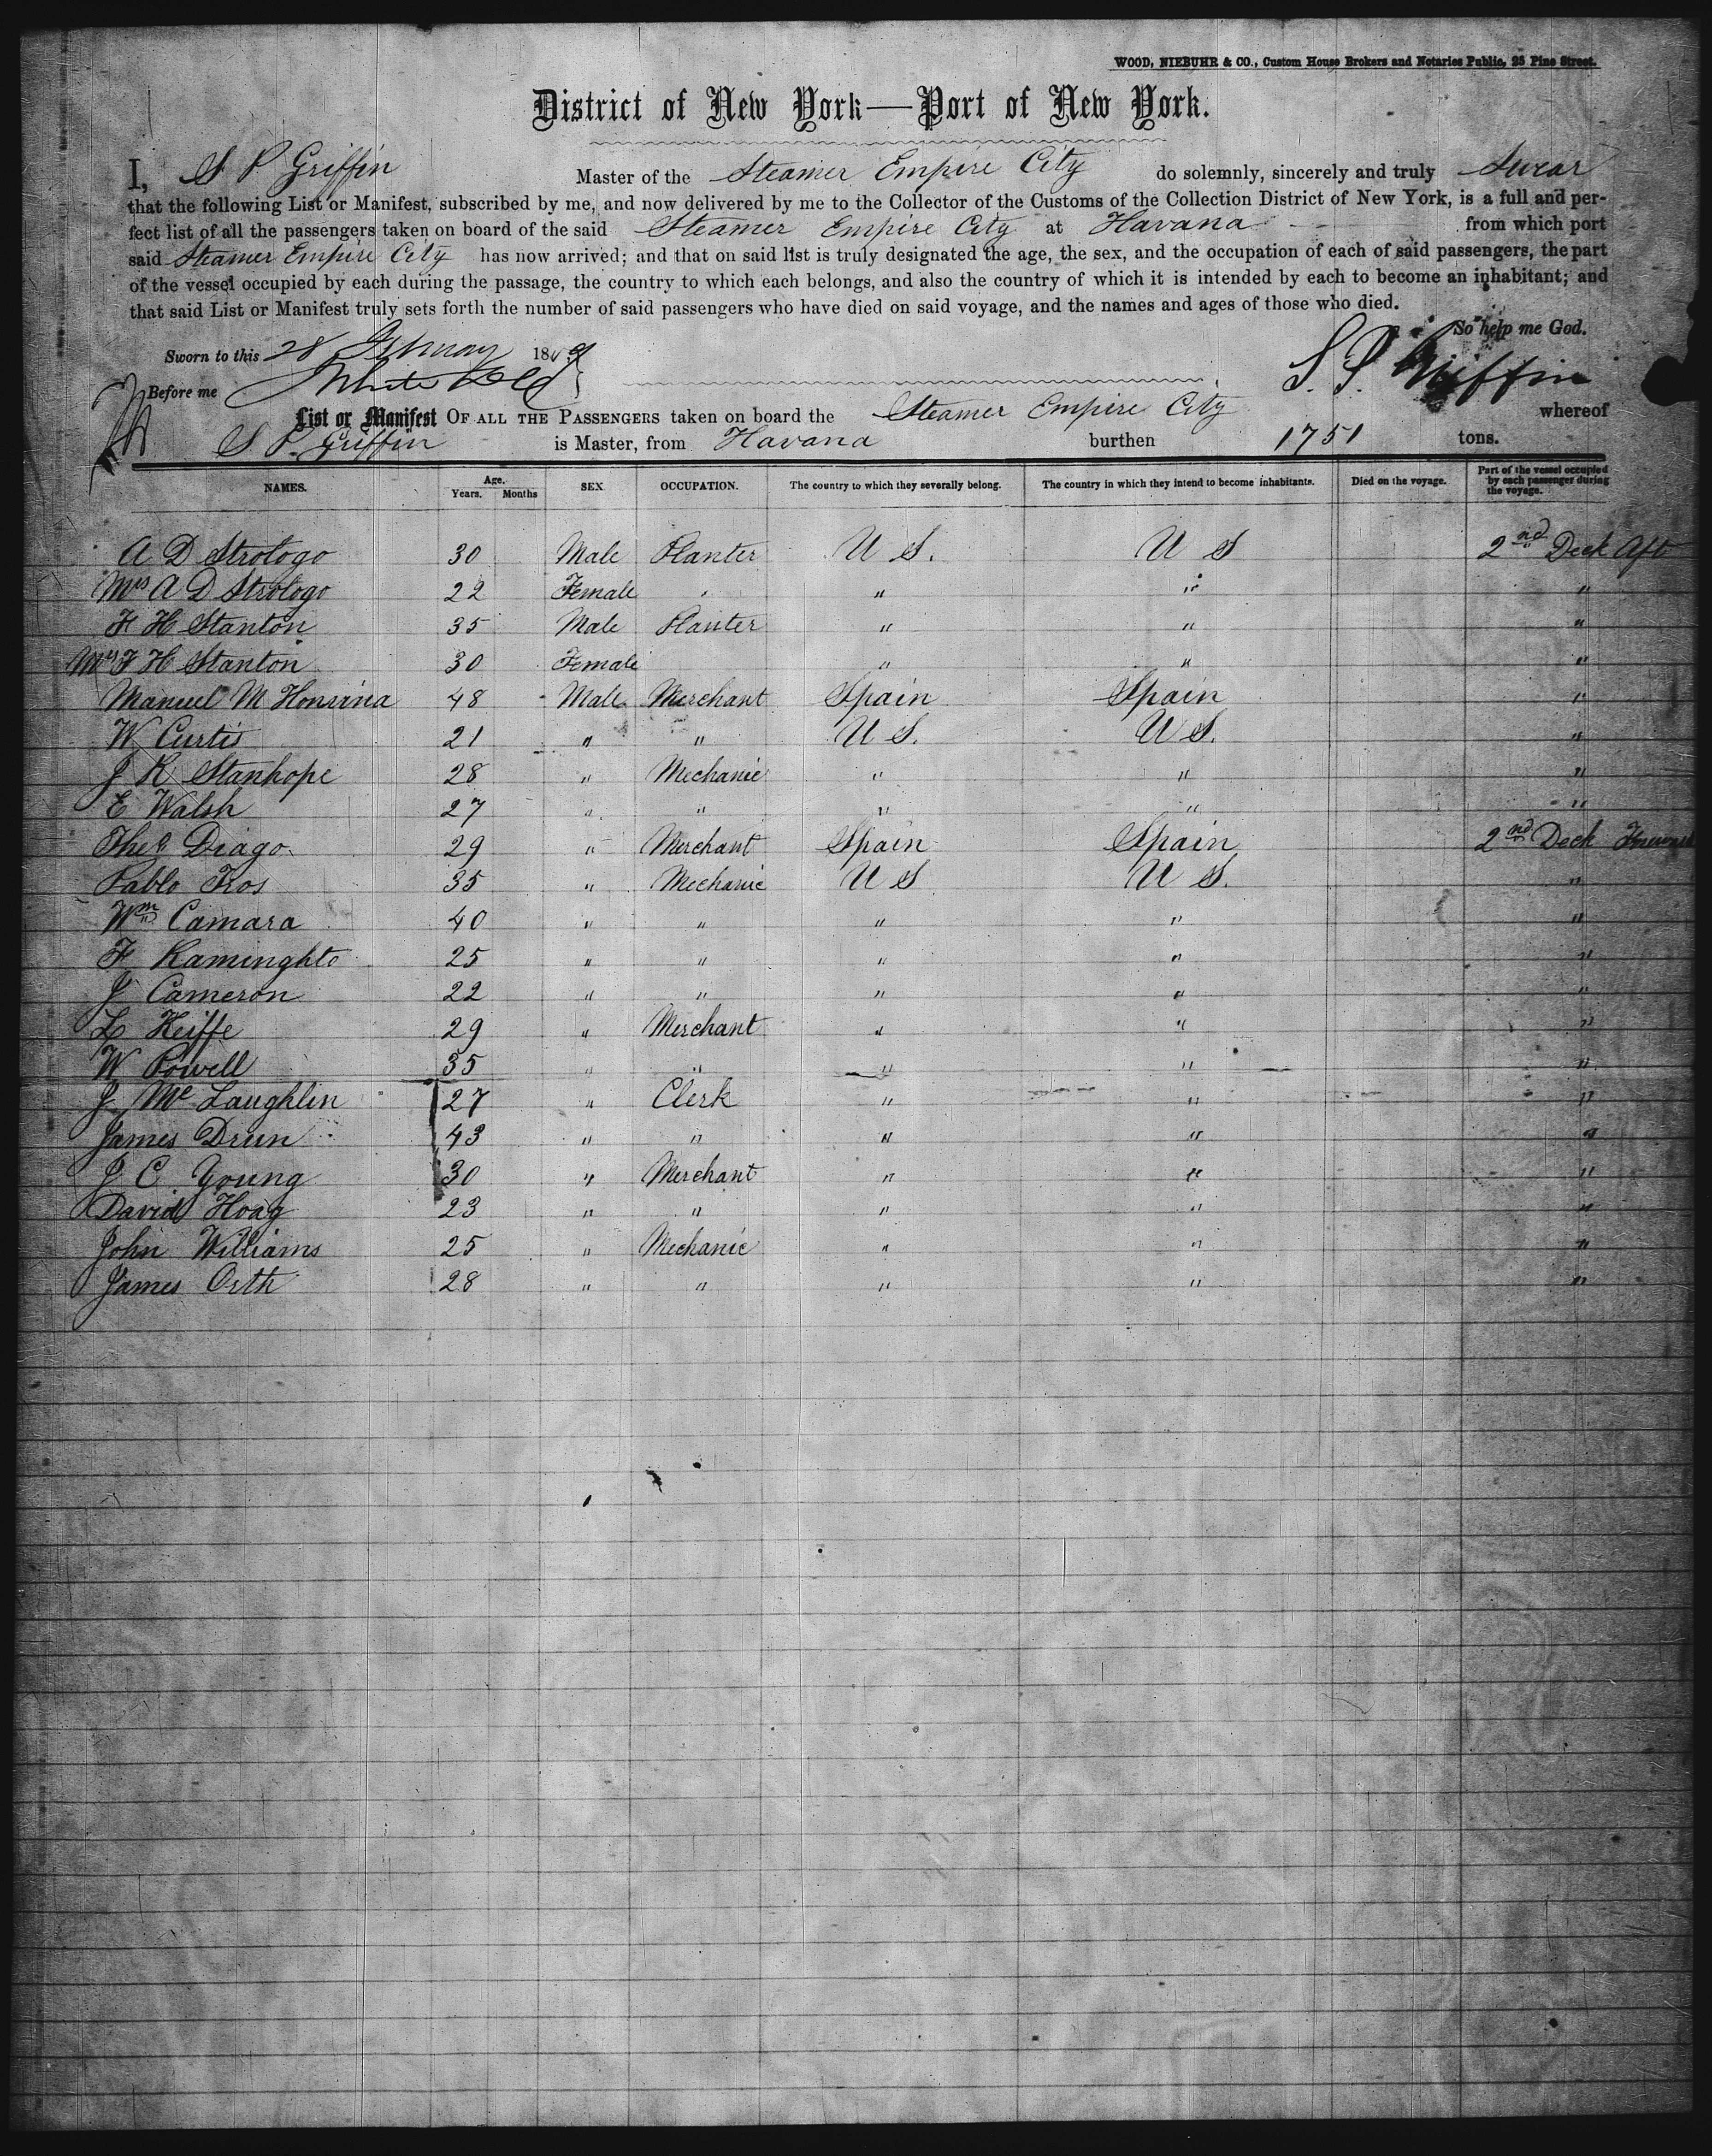 WOOD, NIEBUHR & CO., Custom House Brokers and Notaries Public, 25 Pine Street.
District of New York—Port of New York.
I, S P Griffin Master of the Steamer Empire City do solemnly, sincerely and truly Swear
that the following List or Manifest, subscribed by me, and now delivered by me to the Collector of the Customs of the Collection District of New York, is a full and per-
fect list of all the passengers taken on board of the said Steamer Empire City at Havana from which port
said Steamer Empire City has now arrived; and that on said list is truly designated the age, the sex, and the occupation of each of said passengers, the part
of the vessel occupied by each during the passage, the country to which each belongs, and also the country of which it is intended by each to become an inhabitant; and
that said List or Manifest truly sets forth the number of said passengers who have died on said voyage, and the names and ages of those who died.
So help me God.
Sworn to this 28 February 18
Before me S. P. Griffin
List or Manifest OF ALL THE PASSENGERS taken on board the Steamer Empire City whereof
S P. Griffin is Master, from Havana burthen 1751 tons.
NAMES. Age. Years. Months SEX OCCUPATION. The country to which they severally belong. The country in which they intend to become inhabitants. Died on the voyage. Part of the vessel occupied by each passenger during the voyage.
A D Strologo 30 Male Planter U S. U S 2nd Deck Aft
Mrs A D Strologo 22 Female " " " "
F H Stanton 35 Male Planter " " "
Mrs F H Stanton 30 Female " " "
Manuel M 48 Male Merchant Spain Spain "
W Curtis 21 " " U S. U S. "
J R Stanhope 28 " Mechanic " " "
E Walsh 27 " " " " "
Theo Diago 29 " Merchant Spain Spain 2nd Deck Forward
Pablo Fros 35 " Mechanic U S U S. "
Wm Camara 40 " " " " "
F Raminghto 25 " " " " "
J Cameron 22 " " " " "
L Keiffe 29 " Merchant " " "
W Powell 35 " " " " "
J Mc Laughlin 27 " Clerk " " "
James Drun 43 " " " " "
J C Young 30 " Merchant " " "
David Hoag 23 " " " " "
John Williams 25 " Mechanic " " "
James Orth 28 " " " " "